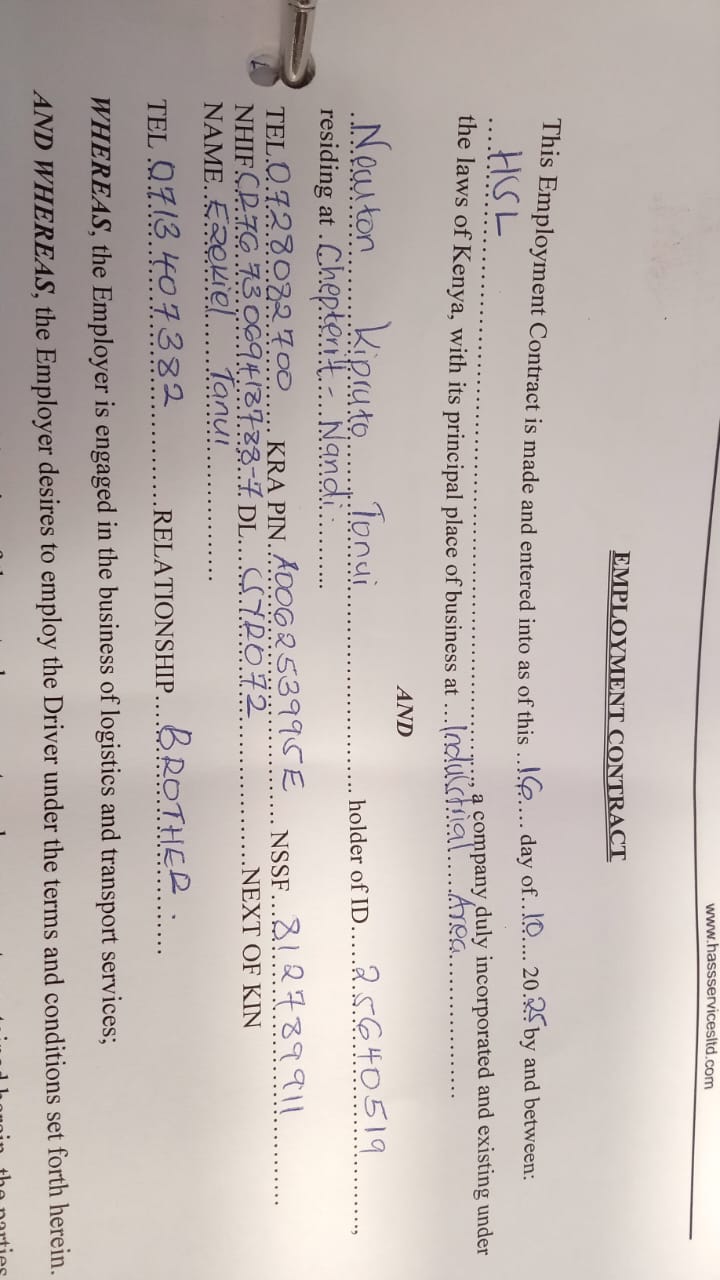 www.hassservicesltd.com
EMPLOYMENT CONTRACT
This Employment Contract is made and entered into as of this ..16.... day of..10.... 20.25 by and between:
....HSL................................................................................, a company duly incorporated and existing under
the laws of Kenya, with its principal place of business at ...Industrial.....Area....................
AND
..Newton......Kipruto....Tonui............................. holder of ID.....25640519..........,
residing at .Chepterit-...Nandi...........
TEL.0728082700...... KRA PIN.A006253995E.... NSSF...812789911............
NHIF CR7673069418788-7 DL....CSYR072....................NEXT OF KIN
NAME..Ezekiel......Tanui.................
TEL .0713407382............RELATIONSHIP....BROTHER.......
WHEREAS, the Employer is engaged in the business of logistics and transport services;
AND WHEREAS, the Employer desires to employ the Driver under the terms and conditions set forth herein.
herein, the parties